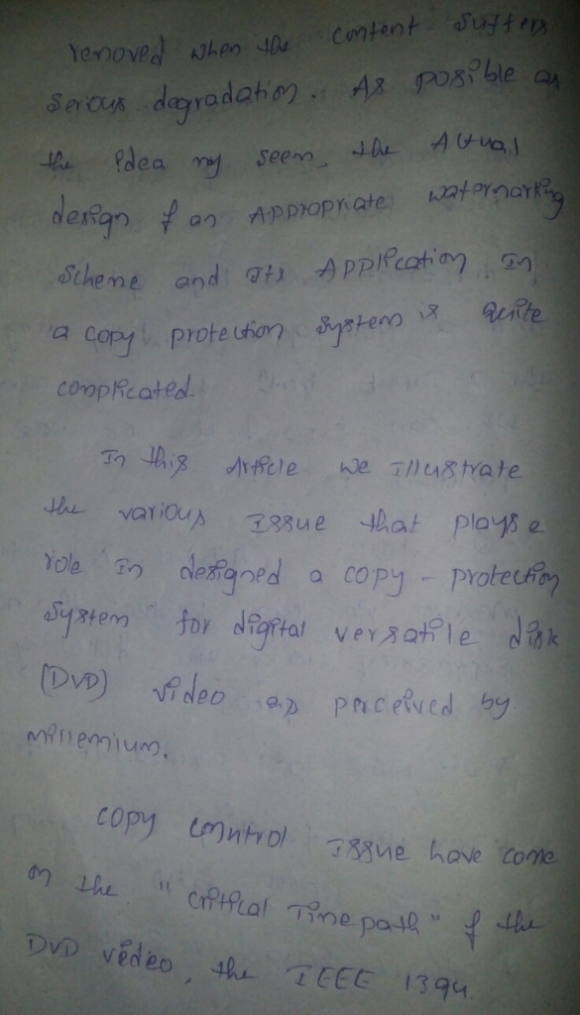 removed when the content suffers
serious degradation. As posible as
the idea my seem, the Actual
design f an Appropriate watermarking
scheme and its Application In
a copy protection system is quite
complicated.
In this Article we Illustrate
the various Issue that plays e
role In designed a copy - protection
system for digital versatile disk
(DVD) video as perceived by
millemium.
copy control Issue have come
on the "critical Time path" f the
DVD video, the IEEE 1394